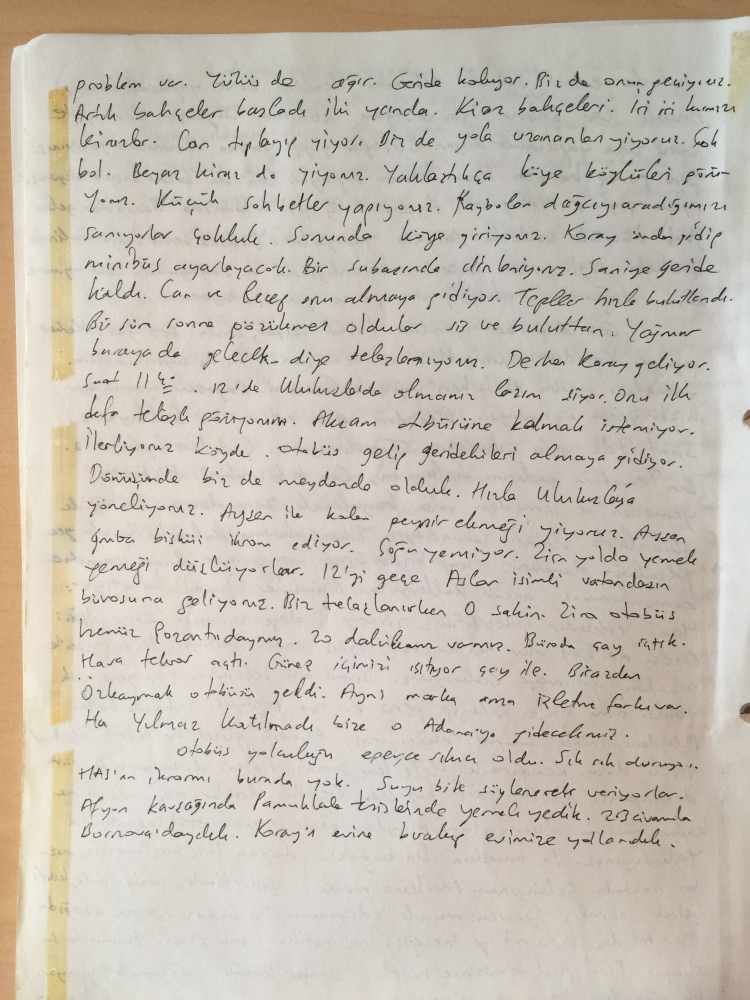 problem var. Yükü de ağır. Geride kalıyor. Biz de onun
Artık bahçeler başladı iki yanda. Kiraz bahçeleri. İri iri kırmızı
kirazlar. Can toplayıp yiyor. Biz de yola uzananları yiyoruz. Çok
bol. Beyaz kiraz da yiyoruz. Yaklaştıkça köye köylüleri görü-
yoruz. Küçük sohbetler yapıyoruz. Kaybolan dağcıyı aradığımızı
sanıyorlar çokluk. Sonunda köye giriyoruz. Koray önden gidip
minibüs ayarlayacak. Bir subaşında dinleniyoruz. Saniye geride
kaldı. Can ve Recep onu almaya gidiyor. Tepeler hızla bulutlandı.
Bir süre sonra gözükmez oldular sis ve buluttan. Yağmur
buraya da gelecek diye telaşlanıyoruz. Derken Koray geliyor.
Saat 11 . 12'de Ulukışla'da olmamız lazım diyor. Onu ilk
defa telaşlı görüyorum. Akşam otobüsüne kalmak istemiyor.
İlerliyoruz köyde. Otobüs gelip geridekileri almaya gidiyor.
Dönüşünde biz de meydanda olduk. Hızla Ulukışla'ya
yöneliyoruz. Ayşen ile kalan peynir ekmeği yiyoruz. Ayşen
gruba bisküi ikram ediyor. Çoğu yemiyor. Zira yolda yemek
yemeği düşlüyorlar. 12'yi geçe Aslan isimli vatandaşın
bürosuna geliyoruz. Biz telaşlanırken O sakin. Zira otobüs
henüz Pozantıdaymış. 20 dakikamız varmış. Büroda çay içtik.
Hava tekrar açtı. Güneş içimizi ısıtıyor çay ile. Birazdan
Özkaymak otobüsü geldi. Aynı marka ama işletme farkı var.
Ha Yılmaz katılmadı bize o Adana'ya gidecekmiş.
Otobüs yolculuğu epeyce sıkıcı oldu. Sık sık duruyor.
HAS'ın ikramı burada yok. Suyu bile söylenerek veriyorlar.
Afyon kavşağında Pamukkale tesislerinde yemek yedik. civarında
Bornova'daydık. Koray'ı evine bırakıp evimize yollandık.